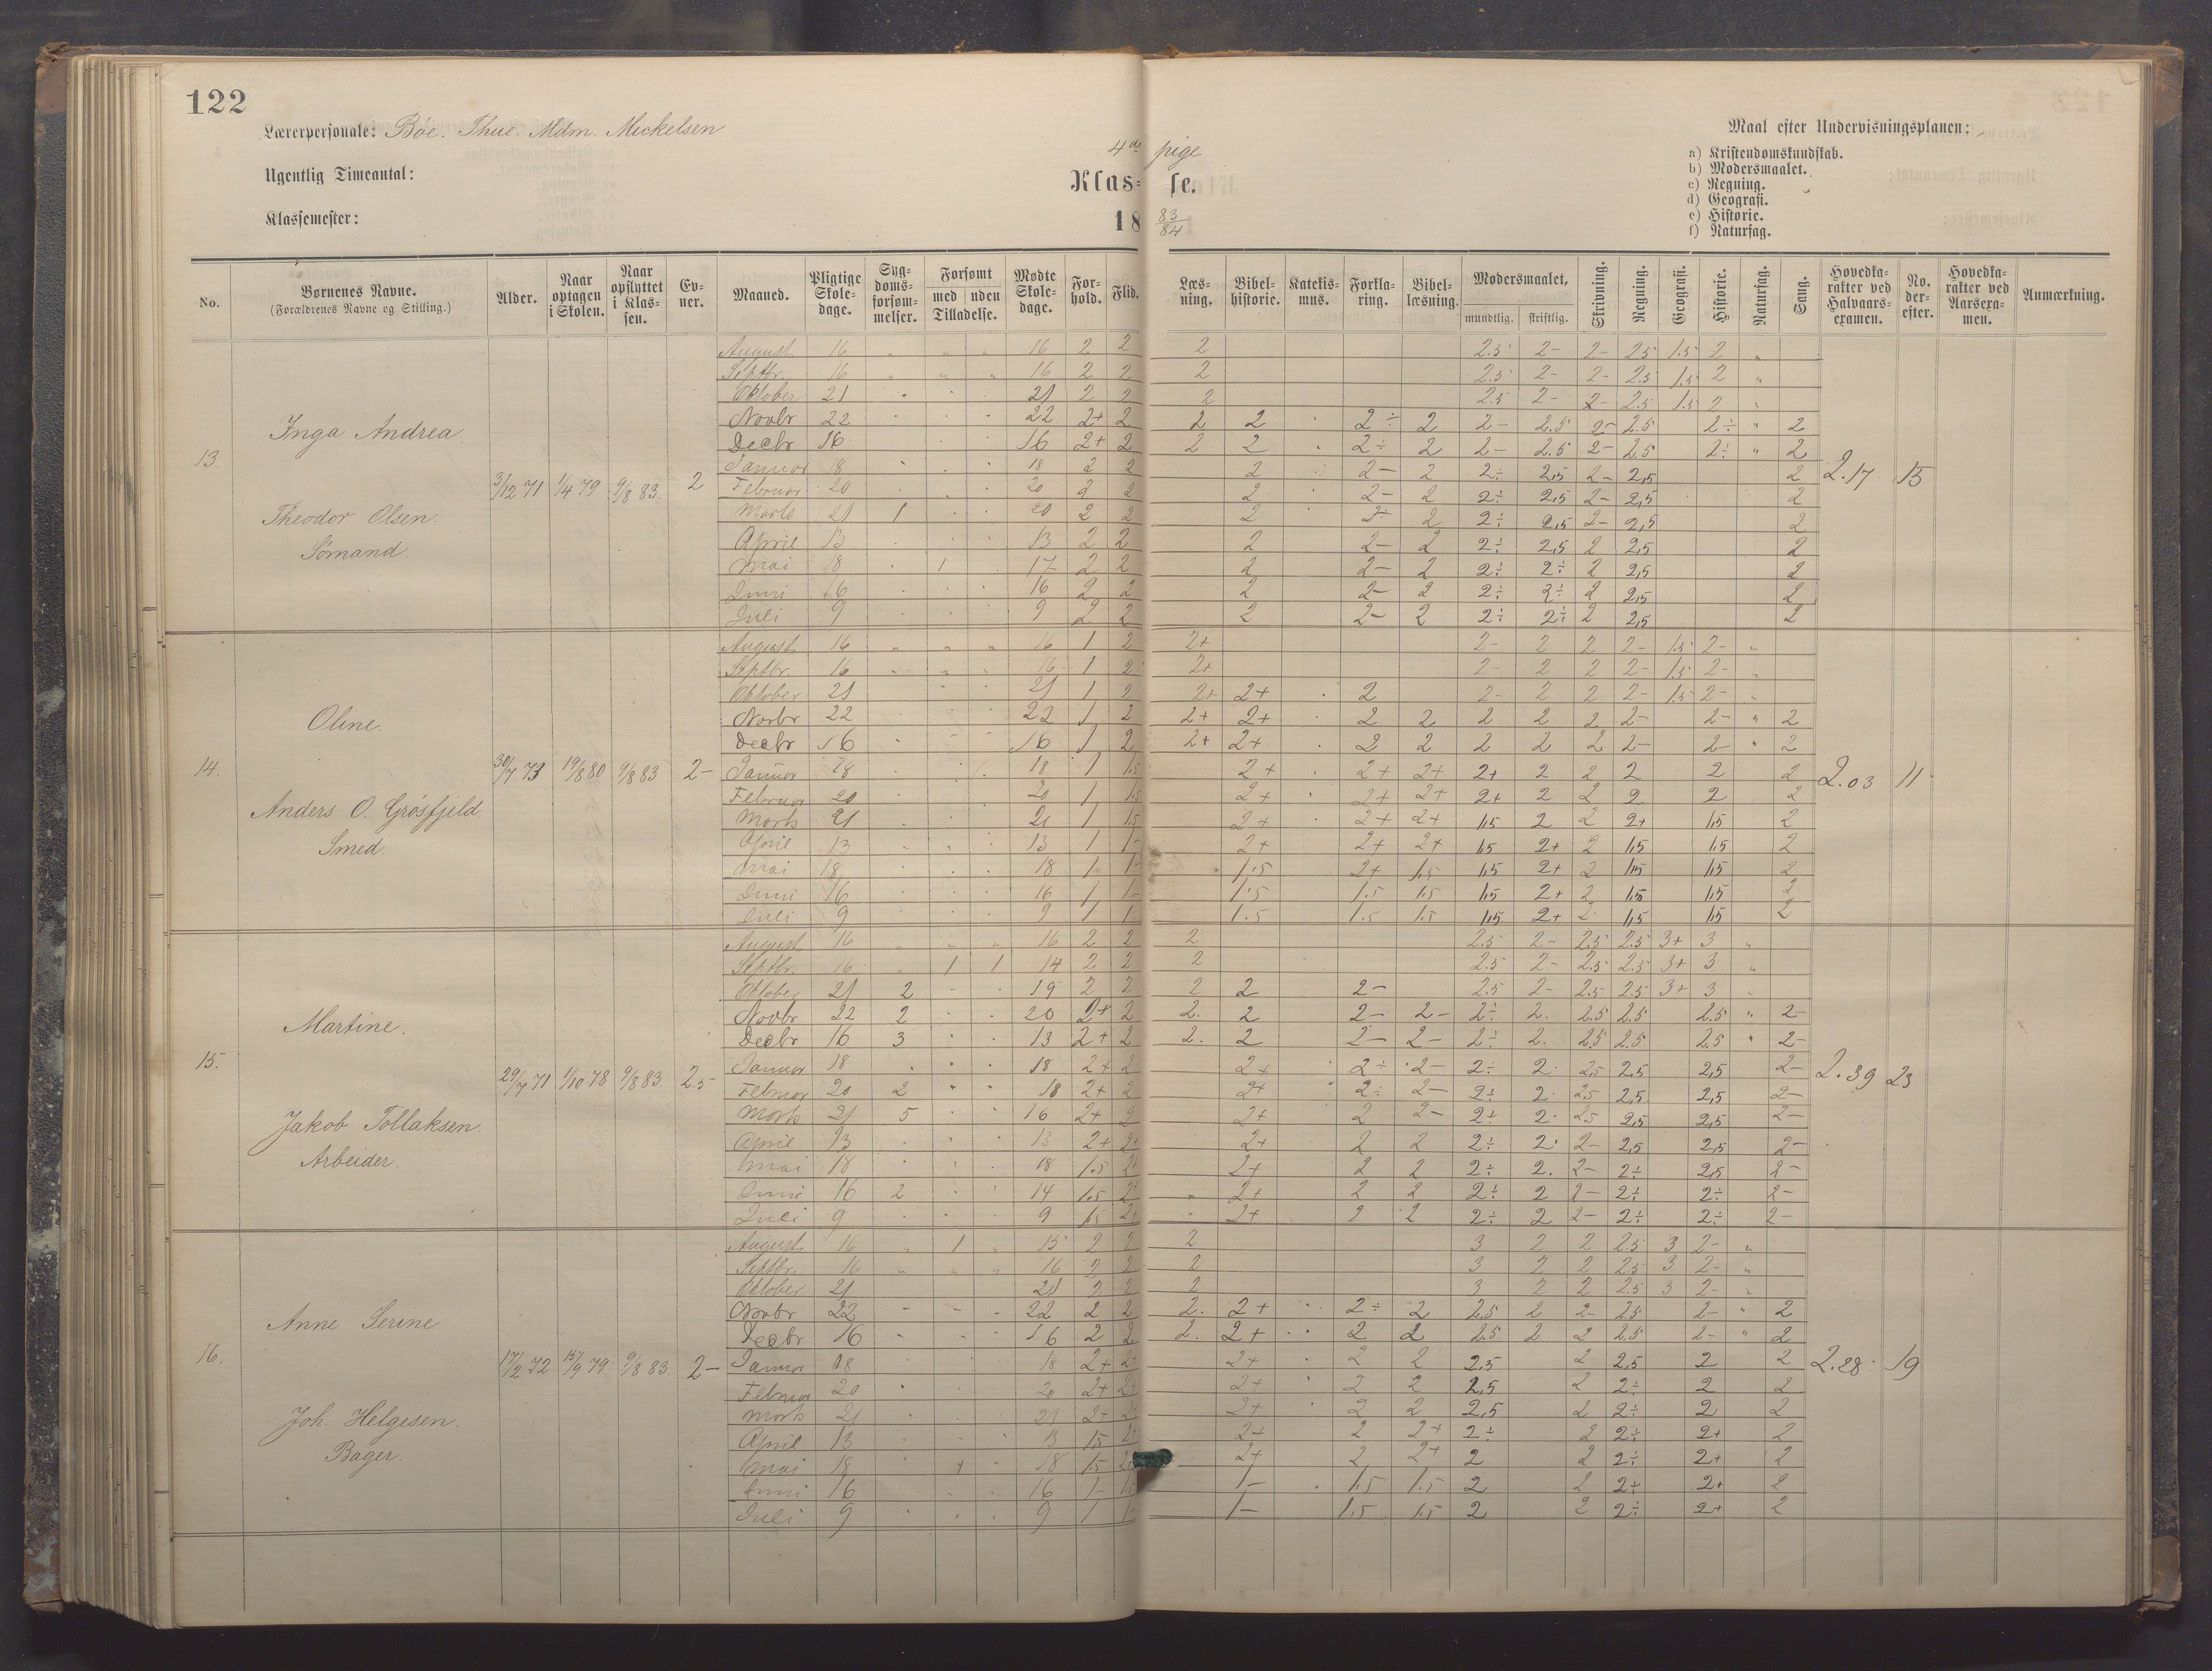 122
Lærerpersonale: Böe. Thue. Mdm. Mickelsen
Ugentlig Timeantal:
Klassemester:
4de pige
Klas= se.
18 83/84
Maal efter Undervisningsplanen:
a) Kristendomskundskab.
b) Modersmaalet.
c) Regning.
d) Geografi.
e) Historie.
f) Naturfag.
No. Børnenes Navne. (Forældrenes Navne og Stilling.) Alder. Naar optagen i Skolen. Naar opflyttet i Klas- sen. Ev- ner. Maaned. Pligtige Skole- dage. Syg- doms- forsøm- melser. Forsømt med uden Tilladelse. Mødte Skole- dage. For- hold. Flid. Læs- ning. Bibel- historie. Katekis- mus. Forkla- ring. Bibel- læsning. Modersmaalet, mundtlig. skriftlig. Skrivning. Regning. Geografi. Historie. Naturfag. Sang. Hovedka- rakter ved Halvaars- examen. No. der- efter. Hovedka- rakter ved Aarsexa- men. Anmærkning.
13 Inga Andrea Theodor Olsen. Sømand. 3/12 71 1/4 79 9/8 83. 2 2.17 15
August 16 " " " 16 2 2 2 2.5 2- 2- 2.5 1.5 2 "
Septbr. 16 " " " 16 2 2 2 2.5 2- 2- 2.5 1.5 2 "
Oktober 21 21 2 2 2 2.5 2- 2- 2.5 1.5 2
Novbr 22 22 2+ 2 2 2 2÷ 2 2- 2.5 2- 2.5 2÷ " 2
Decbr 16 16 2+ 2 2 2 2÷ 2 2- 2.5 2- 2.5 2÷ " 2
Januar 18 18 2 2 2 2- 2 2÷ 2,5 2- 2,5 2
Februar 20 20 2 2 2 2- 2 2÷ 2,5 2- 2,5 2
Marts 21 1 20 2 2 2 2÷ 2 2÷ 2,5 2- 2,5 2
April 13 13 2 2 2 2- 2 2÷ 2,5 2 2,5 2
Mai 18 1 17 2 2 2 2- 2 2÷ 2÷ 2 2,5 2
Juni 16 16 2 2 2 2- 2 2÷ 2÷ 2 2,5 2
Juli 9 9 2 2 2 2- 2 2÷ 2÷ 2 2,5 2
14. Oline. Anders O. Grösfjeld. Smed. 30/7 73 19/8 80 9/8 83 2- 2.03 11
August 16 " " " 16 1 2 2+ 2- 2 2 2- 1.5 2- "
Septbr. 16 16 1 2 2+ 2- 2 2 2- 1.5 2- "
Oktober 21 21 1 2 2+ 2+ 2 2- 2 2 2- 1.5 2- "
Novbr 22 22 1 2 2+ 2+ 2 2 2 2 2 2- 2- " 2
Decbr 16 16 1 2 2+ 2+ 2 2 2 2 2 2- 2- " 2
Januar 18 18 1 1.5 2+ 2+ 2+ 2+ 2 2 2 2 2
Februar 20 20 1 1.5 2+ 2+ 2+ 2+ 2 2 2 2 2
Marts 21 21 1 1.5 2+ 2+ 2+ 1,5 2 2 2+ 1,5 2
April 13 13 1 1- 2+ 2+ 2+ 1,5 2+ 2 1,5 1,5 2
Mai 18 18 1 1- 1.5 2+ 1.5 1,5 2+ 2 1,5 1,5 2
Juni 16 16 1 1- 1.5 1.5 1.5 1,5 2+ 2 1,5 1,5 2
Juli 9 9 1 1 1.5 1.5 1.5 1,5 2+ 2 1,5 1,5 2
15. Martine. Jakob Tollaksen. Arbeider. 29/7 71 1/10 78 9/8 83 2.5 2.39 23
August 16 " " " 16 2 2 2 2.5 2- 2.5 2.5 3+ 3 "
Septbr. 16 " 1 1 14 2 2 2 2.5 2- 2.5 2.5 3+ 3 "
Oktober 21 2 19 2 2 2 2 2- 2.5 2- 2.5 2.5 3+ 3 "
Novbr 22 2 20 2+ 2 2. 2 2- 2- 2÷ 2. 2.5 2.5 2.5 " 2-
Decbr 16 3 13 2+ 2 2. 2 2- 2- 2÷ 2. 2.5 2.5 2.5 " 2-
Januar 18 18 2+ 2 2+ 2÷ 2- 2÷ 2 2.5 2,5 2,5 2-
Februar 20 2 18 2+ 2 2+ 2÷ 2- 2÷ 2 2.5 2,5 2,5 2-
Marts 21 5 16 2+ 2 2+ 2 2- 2÷ 2 2.5 2,5 2,5 2-
April 13 13 2+ 2+ 2+ 2 2 2÷ 2 2- 2,5 2,5 2-
Mai 18 18 1.5 2+ 2+ 2 2 2÷ 2. 2- 2÷ 2,5 2-
Juni 16 2 14 1.5 2+ 2+ 2 2 2÷ 2 2- 2÷ 2÷ 2-
Juli 9 9 1.5 2+ 2+ 2 2 2÷ 2 2- 2÷ 2÷ 2-
16. Anne Serine Joh. Helgesen. Bager. 17/2 72 15/9 79 9/8 83 2- 2.28 19
August 16 " 1 " 15 2 2 2 3 2 2 2.5 3 2- "
Septbr. 16 " " " 16 2 2 2 3 2 2 2.5 3 2- "
Oktober 21 21 2 2 2 3 2 2 2.5 3 2- "
Novbr 22 22 2 2 2. 2+ 2÷ 2 2.5 2 2- 2.5 2- " 2
Decbr 16 16 2 2 2. 2+ 2 2 2.5 2 2 2.5 2- " 2
Januar 18 18 2+ 2+ 2 2 2,5 2 2,5 2 2
Februar 20 20 2+ 2+ 2+ 2 2 2,5 2 2÷ 2 2
Marts 21 21 2+ 2+ 2+ 2 2 2,5 2 2÷ 2 2
April 13 13 1.5 2+ 2+ 2 2+ 2÷ 2 2÷ 2+ 2
Mai 18 18 1.5 2+ 2+ 2 2+ 2 2 2÷ 2+ 2
Juni 16 16 1- 1.5 1- 1.5 1.5 2 2 2÷ 2+ 2
Juli 9 9 1 1- 1- 1.5 1.5 2 2 2÷ 2+ 2